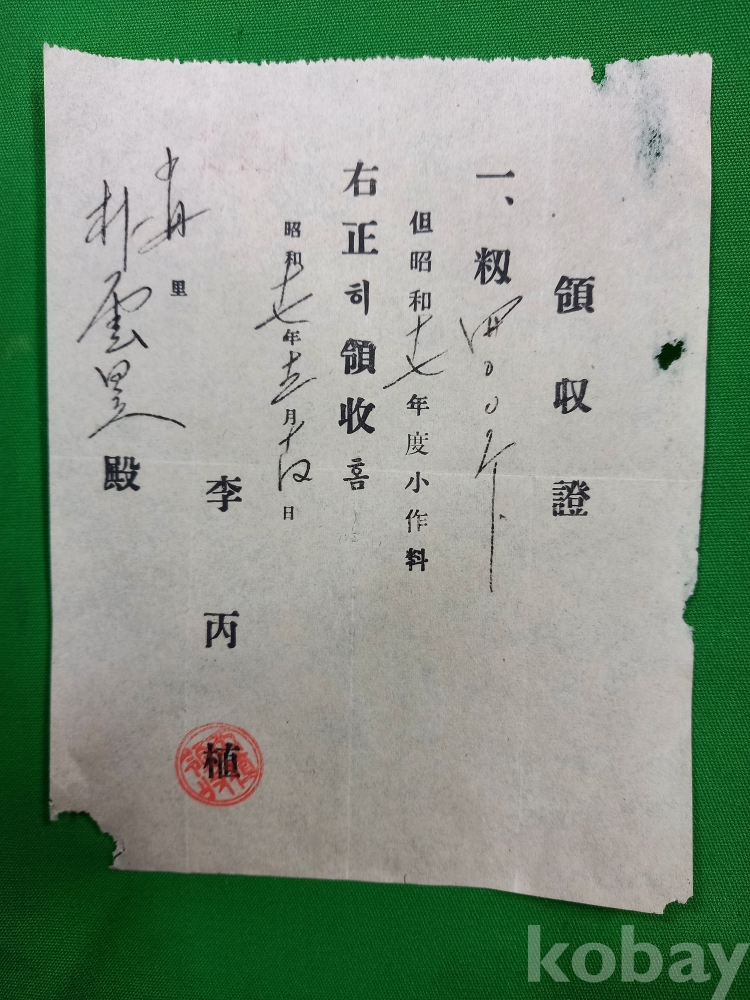 領収證
一、籾四〇〇斤
但昭和十七年度小作料
右正히領收홈
昭和十七年 月 日
李丙植
里
朴雲 殿
kobay